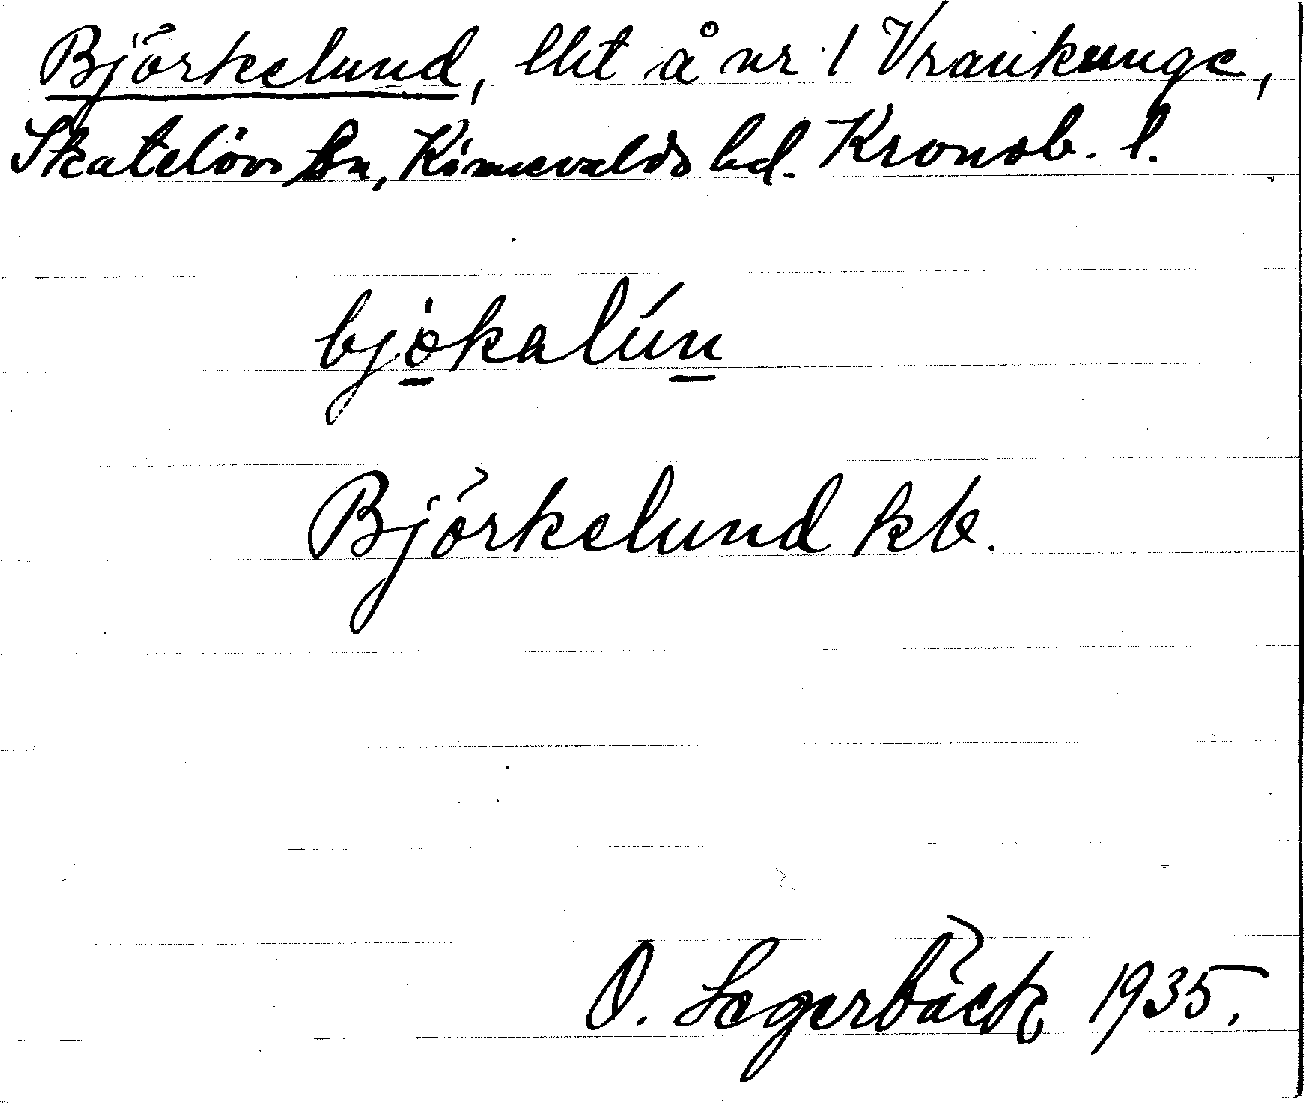 Björkelund, lht å nr 1 Vrankunge,
Skatelövs sn, Kinnevalds hd. Kronob. l.
bjo̲kalún̲
Björkelund kb.
O. Lagerbäck 1935.